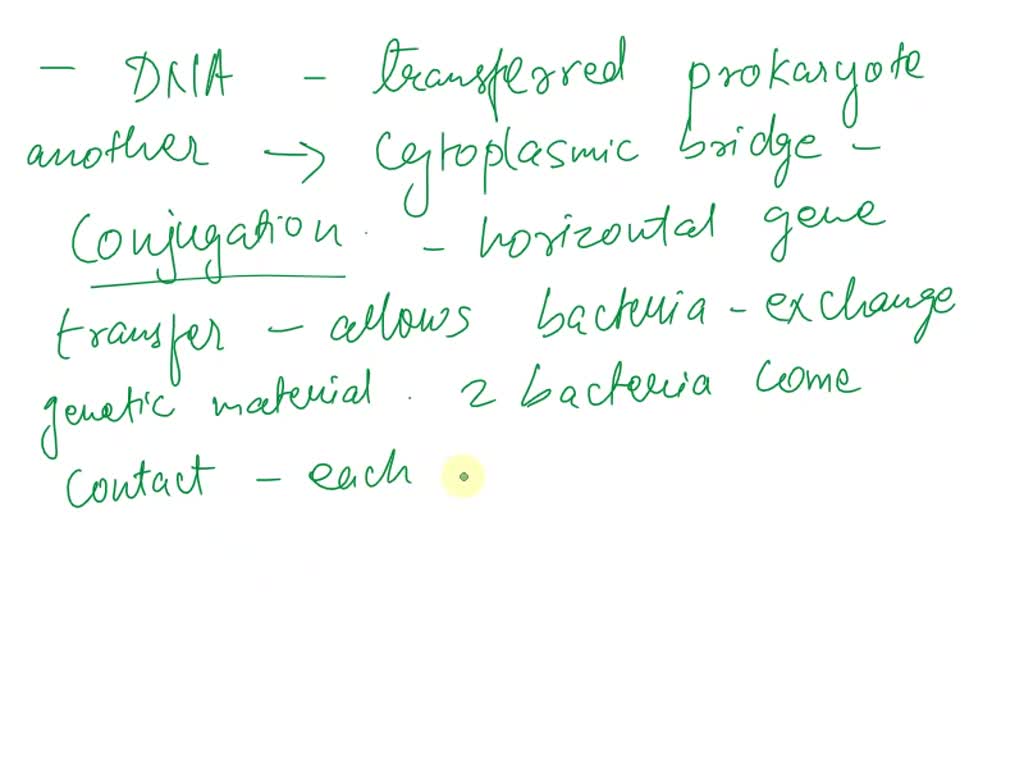 - DNA - transferred prokaryote
another → Cytoplasmic bridge -
Conjugation. - horizontal gene
transfer - allows bacteria - exchange
genetic material. 2 bacteria come
Contact - each